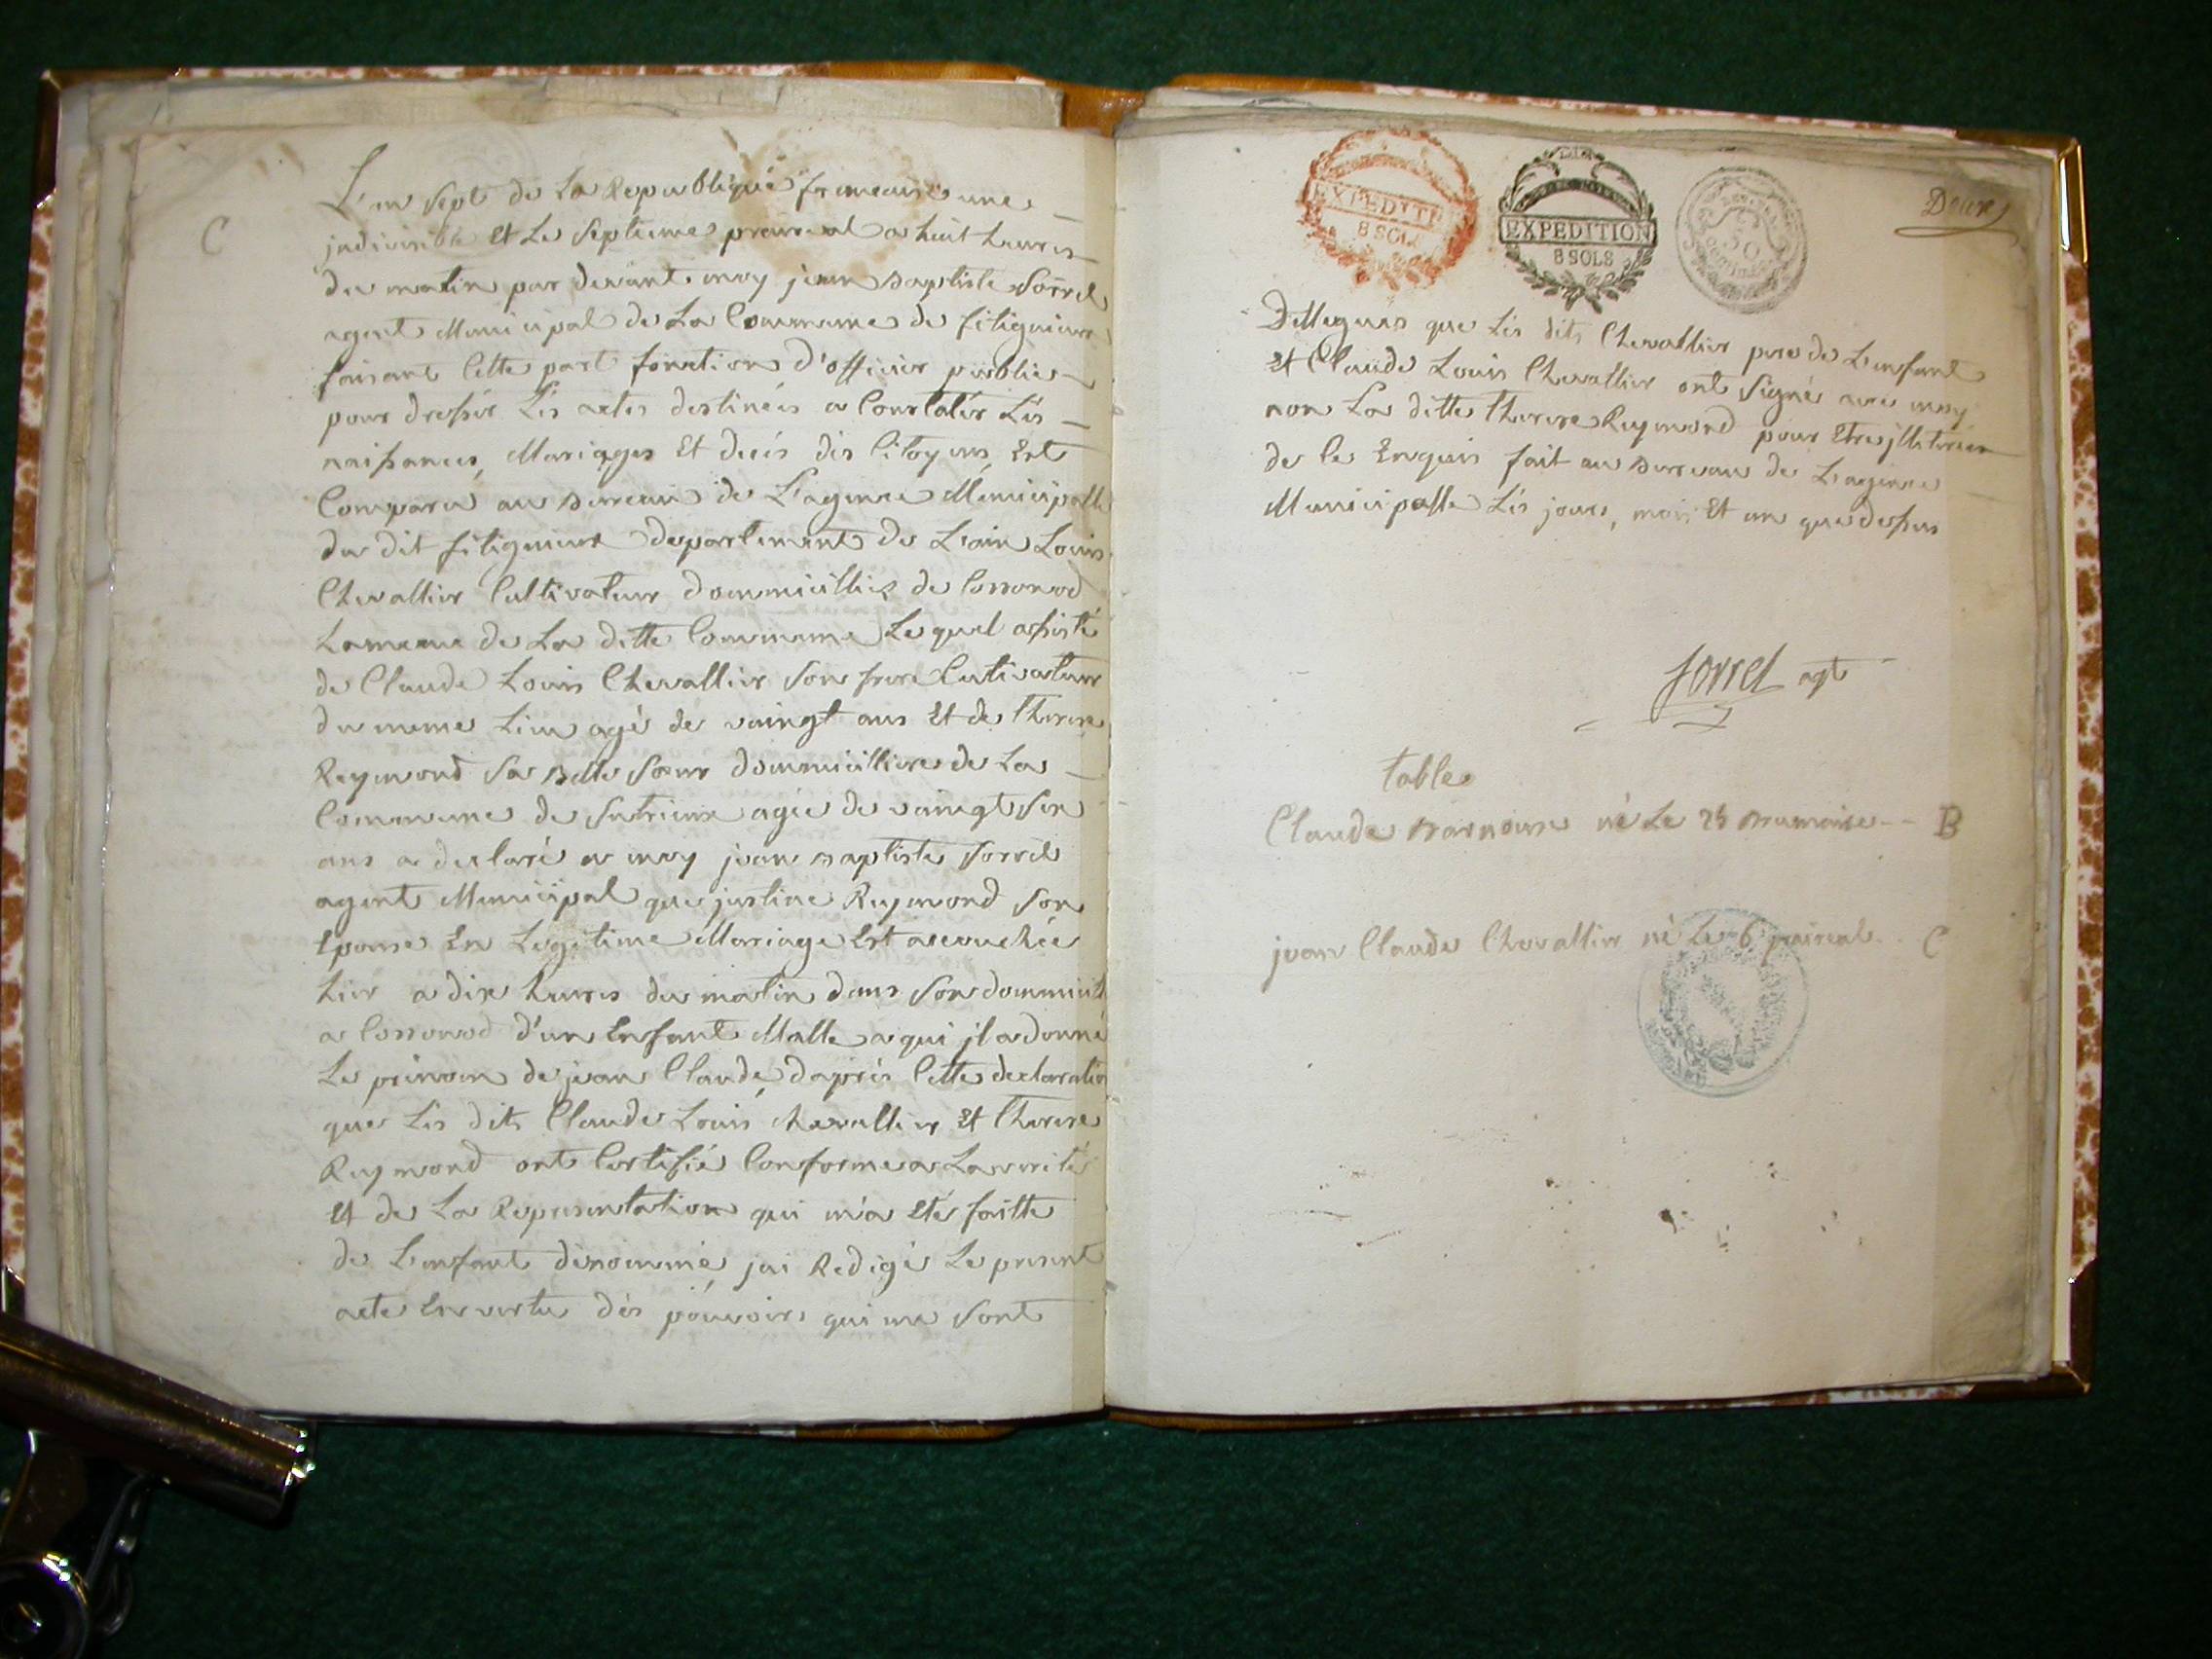 C
L'an sept de la Republique francaise une
jndivisible Et Le septieme prairial a huit heures
du matin par devant moy jean Baptiste Sorrel
agent Municipal de La Commune de fitignieux
faisant Cette part fonction d'officier publie
pour dressér Lés actes destineés a Constatér Lés
naissances, Mariages Et decés des Citoyens, Est
Comparu au Bureau de L'agence Municipalle
du dit fitignieux departement de L'ain Louis
Chevallier Cultivateur dommicillié de Cossonod
hameau de La ditte Commune Lequel assisté
de Claude Louis Chevallier son frere Cutivateur
du meme Lieu agé de vaingt ans Et de therese
Reymond sa Belle sœur dommicilliere de La
Commune de Sutrieux agée de vaingt six
ans a declaré a moy jean Baptiste Sorrel
agent Municipal que justine Reymond son
Epouse En Legitime Mariage Est accouchée
hier a dix heures du matin dans son dommicill
a Cossonod d'un Enfant Malle a qui jl a donné
Le prénom de jean Claude, daprés Cette declaration
que Lés dits Claude Louis chevallier Et therese
Reymond ont Certifié Conforme a La verité
Et de La Representation qui m'a Eté faitte
de L'enfant dénommé, jai Redigé Le present
acte En vertu dés pouvoirs qui me sont
EXPEDITION
8 SOLS
EXPEDITION
8 SOLS
50
centimes
Deux
Dellegués que Lés dits Chevallier pere de L'enfant
Et Claude Louis Chevallier ont signé avec moy
non La ditte therese Reymond pour Etre jlleterée
de Ce Enquis fait au Bureau de L'agence
Municipalle Lés jours, mois Et an que dessus
Sorrel agt
table
Claude né Le Brumaire -- B
jean Claude Chevallier né Le 6 prairial . . C